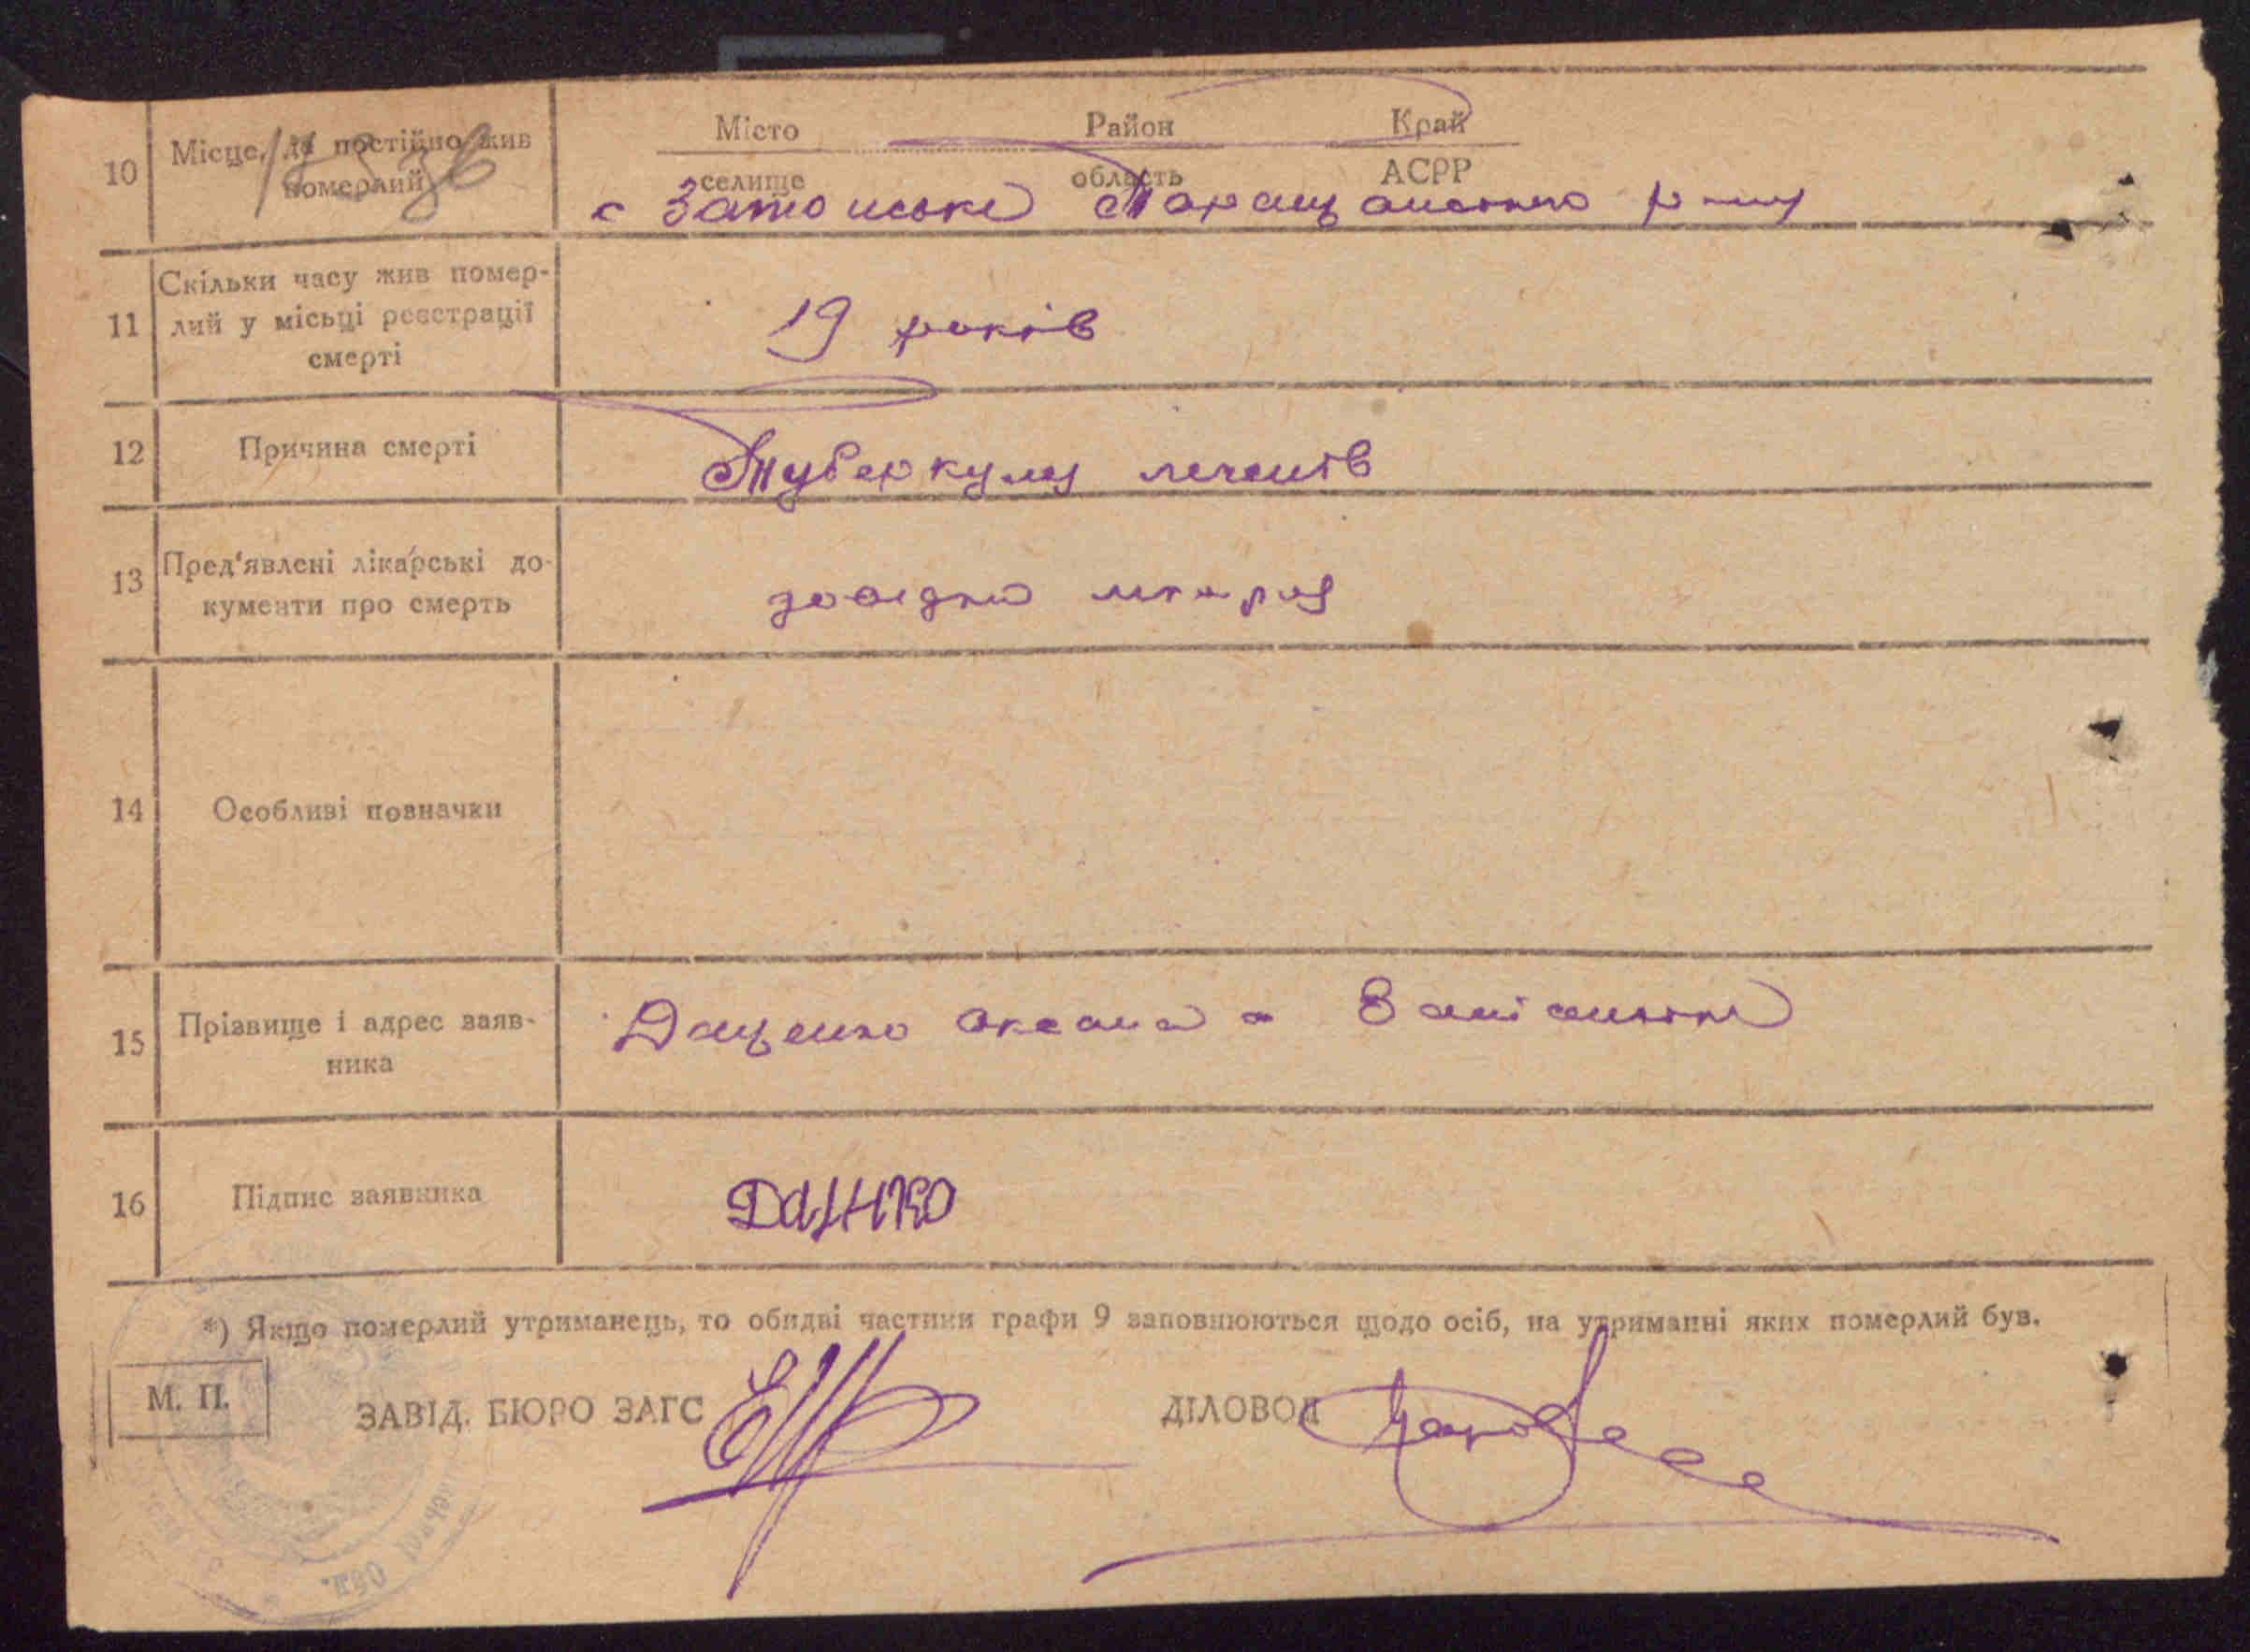 10 Місце, де постійно жив померлий
Місто Район Край
селище область АСРР
с Таращанського р-ну
11 Скільки часу жив помер-
лий у місьці реєстрації
смерті
19 років
12 Причина смерті
Туберкульоз легенів
13 Пред'явлені лікарські до-
кументи про смерть
довідка лікаря
14 Особливі повначки
15 Прізвище і адрес заяв-
ника
Даценко Оксана
16 Підпис заявника
*) Якщо померлий утриманець, то обидві частини графи 9 заповнюються щодо осіб, на утриманні яких померлий був.
М. П.
ЗАВІД. БЮРО ЗАГС ДІЛОВОД